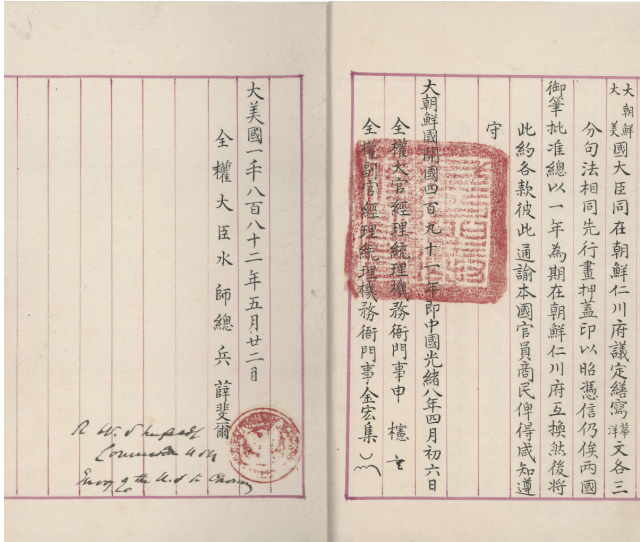 大朝鮮
大美國大臣同在朝鮮仁川府議定繕寫華洋文各三
分句法相同先行畫押蓋印以昭憑信仍俟兩國
御筆批准總以一年為期在朝鮮仁川府互換然後將
此約各款彼此通諭本國官員商民俾得咸知遵
守
大朝鮮國開國四百九十一年即中國光緒八年四月初六日
全權大官經理統理機務衙門事申櫶
全權副官經理統理機務衙門事金宏集
大美國一千八百八十二年五月廿二日
全權大臣水師總兵薛斐爾
R. W. Shufeldt
Commodore U.S.N.
Envoy of the U.S. to Chosen